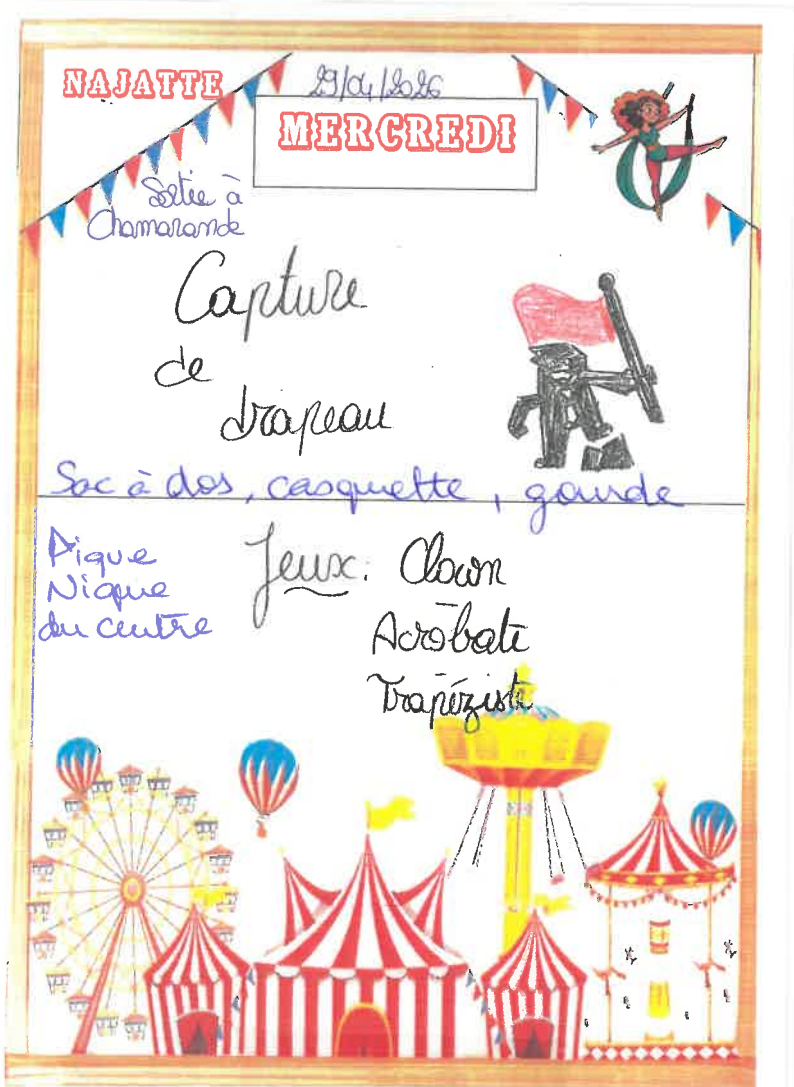 NAJATTE
29/04/2026
MERCREDI
Sortie à
Chamarande
Capture
de
drapeau
Sac à dos, casquette, gourde
Pique
Nique
du centre
Jeux: Clown
Acrobate
Trapéziste